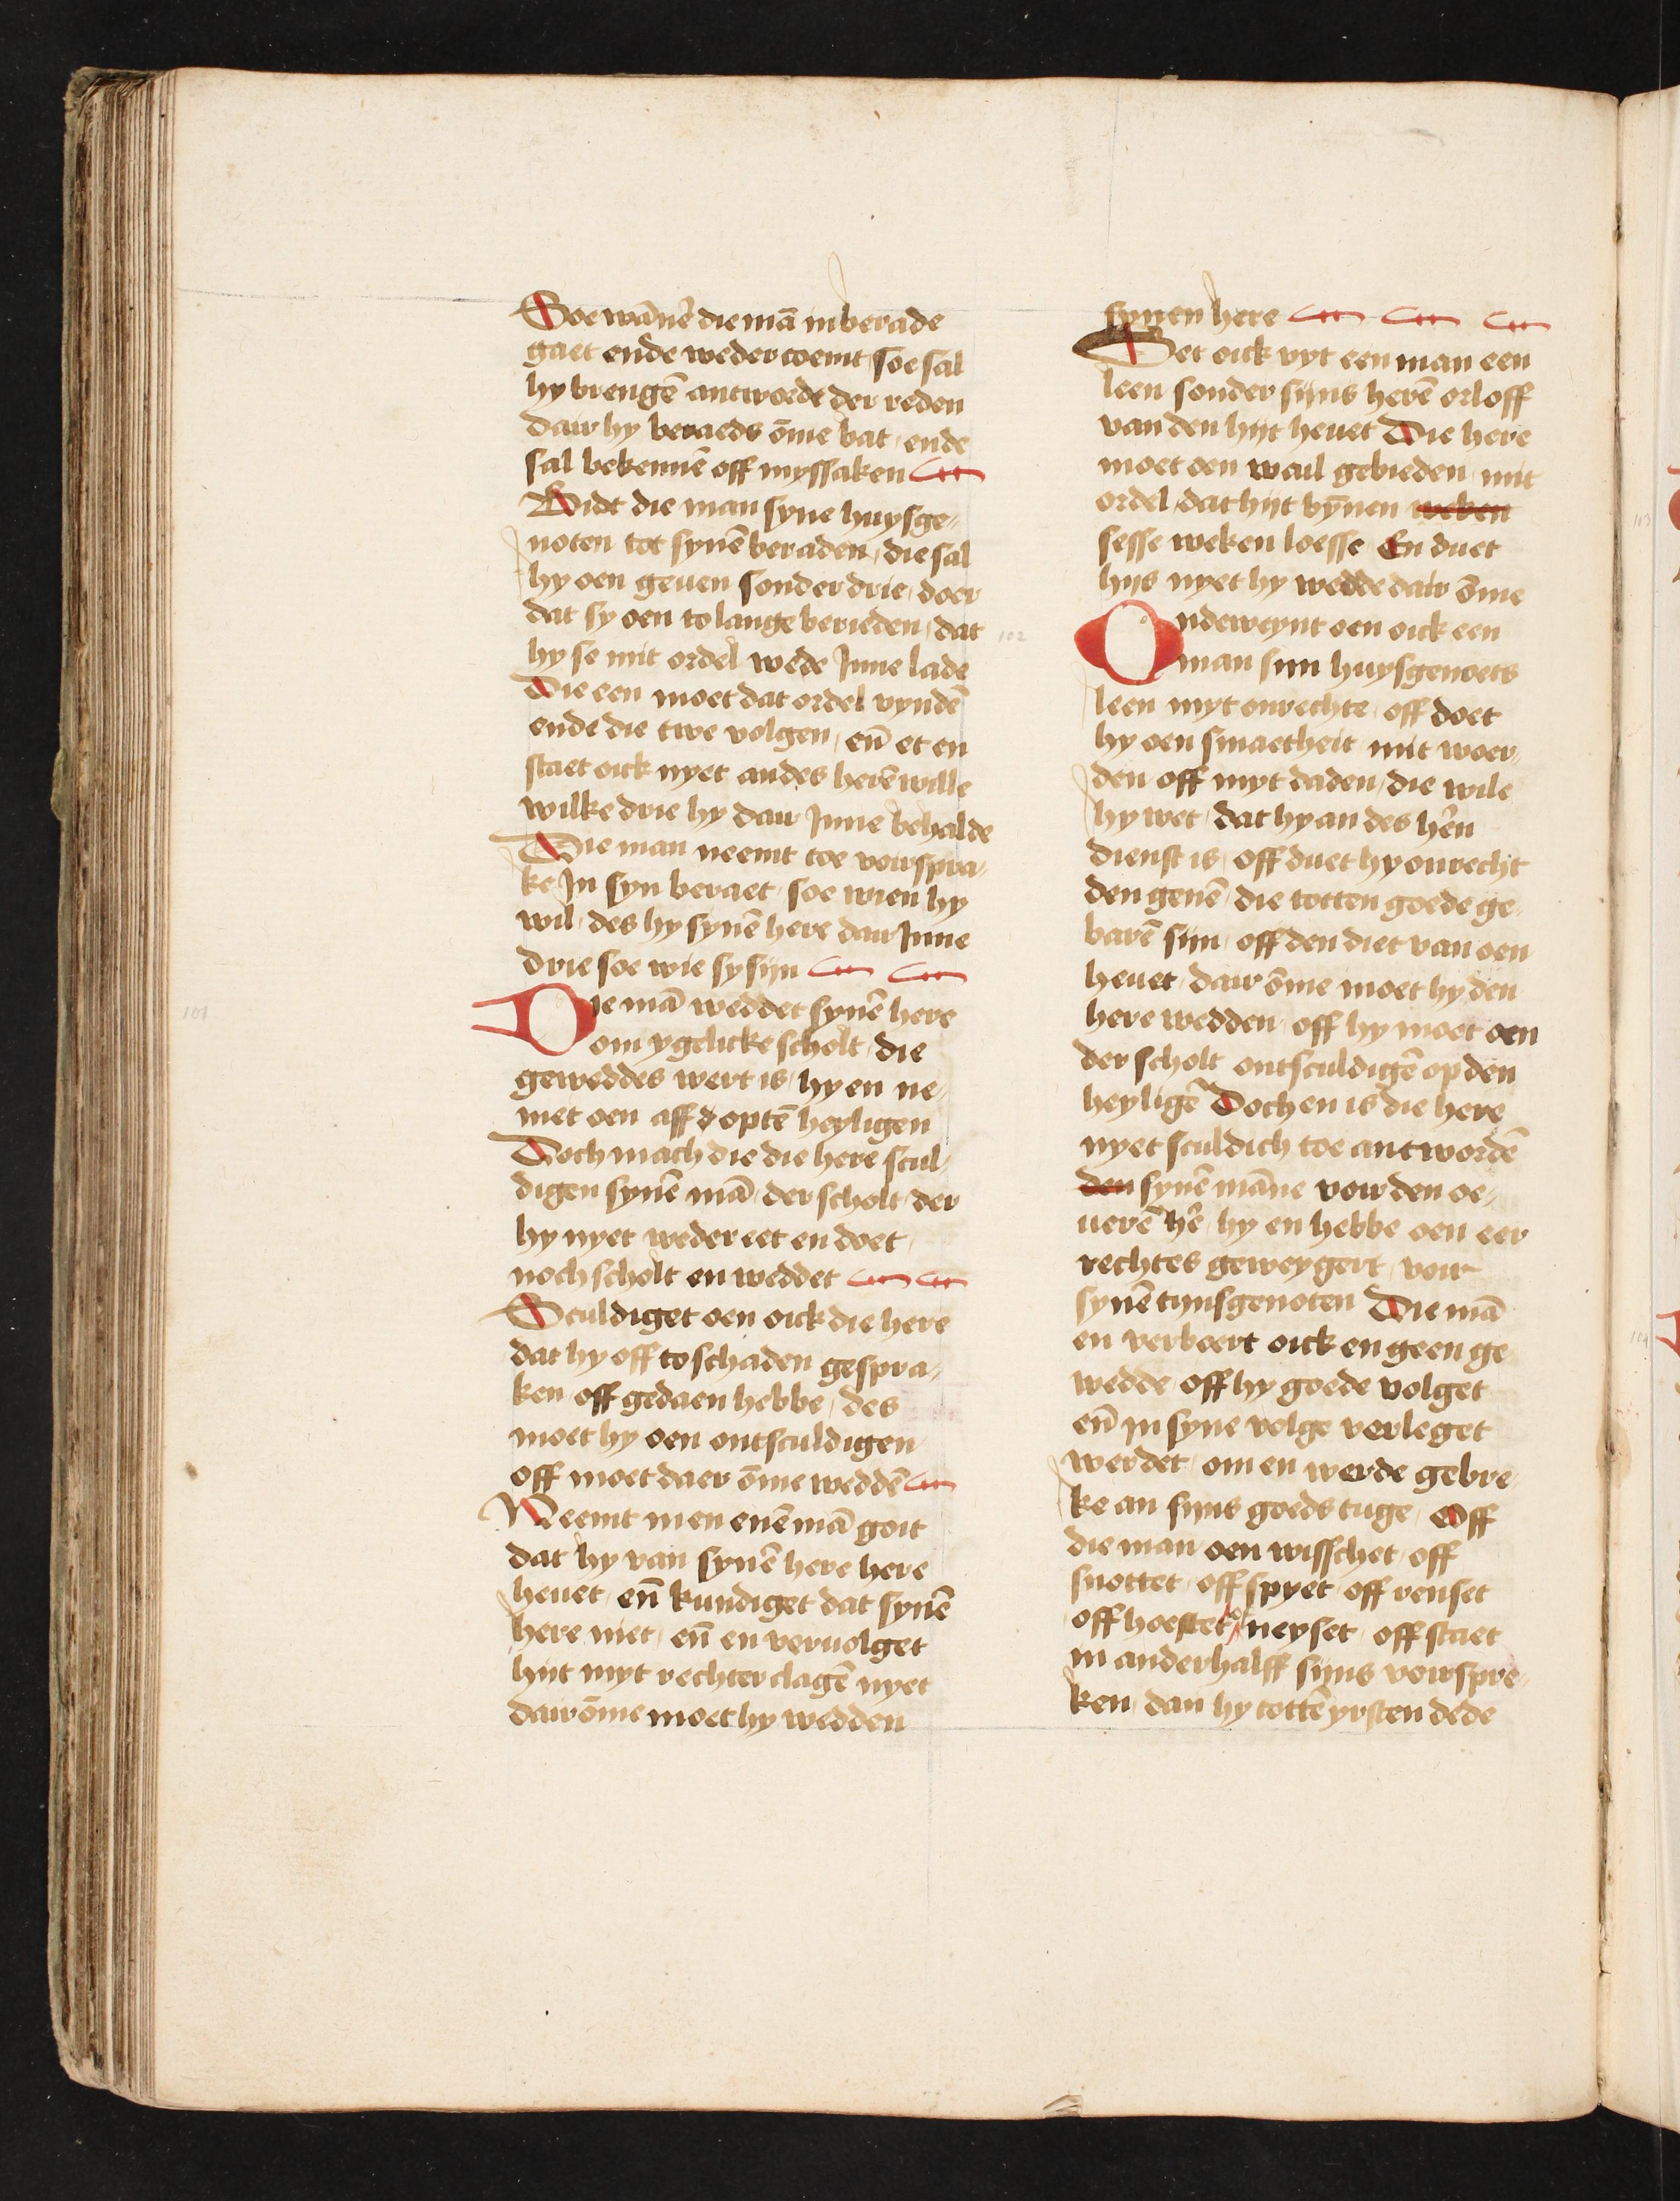 Soe wāner̄ die mā in berade
gaet ende weder coemt soe sal
hy brengē antwordt der reden
dair hy beraeds ōme bat / ende
sal bekennē off myssaken
Bidt die man syne huysge⸗
noten tot synē beraden / die sal
hy oen geuen sonder drie / doer
dat sy oen to lange berieden / dat
hy se mit ordel wede Inne lade
Die een moet dat ordel vyndē
ende die twe volgen / en̄ et en
staet oick nyet an des herē wille
wilke drie hy dair Inne behalde
Die man neemt toe voirspra⸗
ke In syn beraet / soe wien hy
wil / des hy synē here dair Inne
drie soe wie sy sijn
Die mā weddet synē here
om ygelicke scholt / die
geweddes wert is / hy en ne⸗
met oen aff d optē heyligen
Doch mach die die here scul⸗
digen synē mā / der scholt / der
hy nyet weder eet en doet /
noch scholt en weddet
Sculdiget oen oick die here
dat hy off to schaden gespra⸗
ken off gedaen hebbe / des
moet hy oen ontsculdigen /
off moet daer ōme weddē
Neemt men enē mā goit
dat hy van synē here here
heuet / en̄ kundiget dat synē
here niet / en̄ en veruolget
hijt myt rechter clagē nyet
dair ōme moet hy wedden
synen here
Set oick vyt een man een
leen sonder sijns herē orloff
van den hijt heuet Die here
moet oen wail gebieden / mit
ordel / dat hijt bȳnen weken
sesse weken loesse En duet
hijs nyet hy wedde dair ōme
102
Ondeweynt oen oick een
man sijn huysgenoets
leen myt onrechte / off doet
hy oen smaetheit mit woer⸗
den off myt daden / die wile
hy wet / dat hy an des hēn
dienst is / off duet hy onrecht
den genē / die totten goede ge⸗
barē sijn / off den diet van oen
heuet / dair ōme moet hy den
here wedden / off hy moet oen
der scholt ontsculdigē op den
heyligē Doch en is die here
nyet sculdich toe antwordē
den synē māne voir den oe⸗
uerē hē / hy en hebbe oen eer
rechtes geweygert / voir
synē tijnsgenoten Die mā
en verboert oick en geen ge⸗
wedde off hy goede volget
en̄ in syne volge verleget
werdet / om en werde gebre⸗
ke an sijns goeds tuge / Off
die man oen wisschet / off
snottet / off spyet off renset
off hoestet / neyset / off staet
in anderhalff sijns voirspre⸗
ken / dan hy tottē yrsten dede
101
103
104